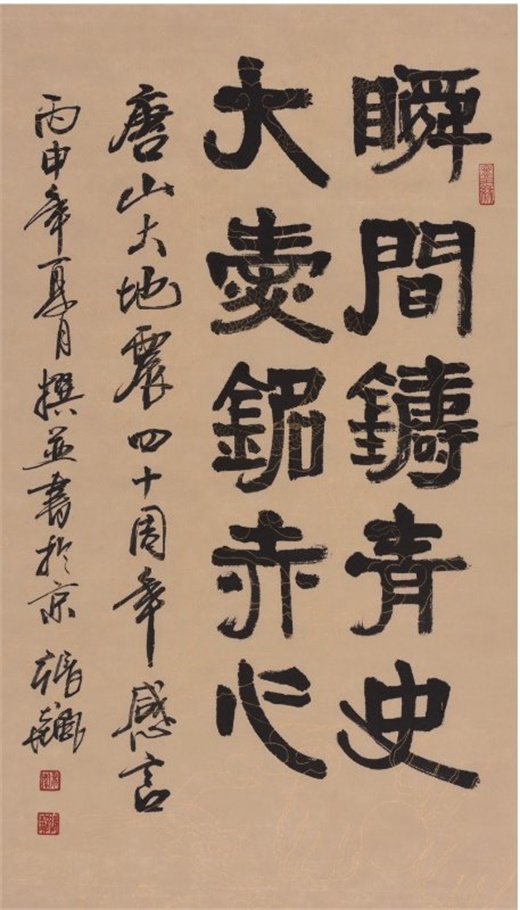 瞬間鑄青史
大愛銘赤心
唐山大地震四十周年感言
丙申年夏月撰並書於京